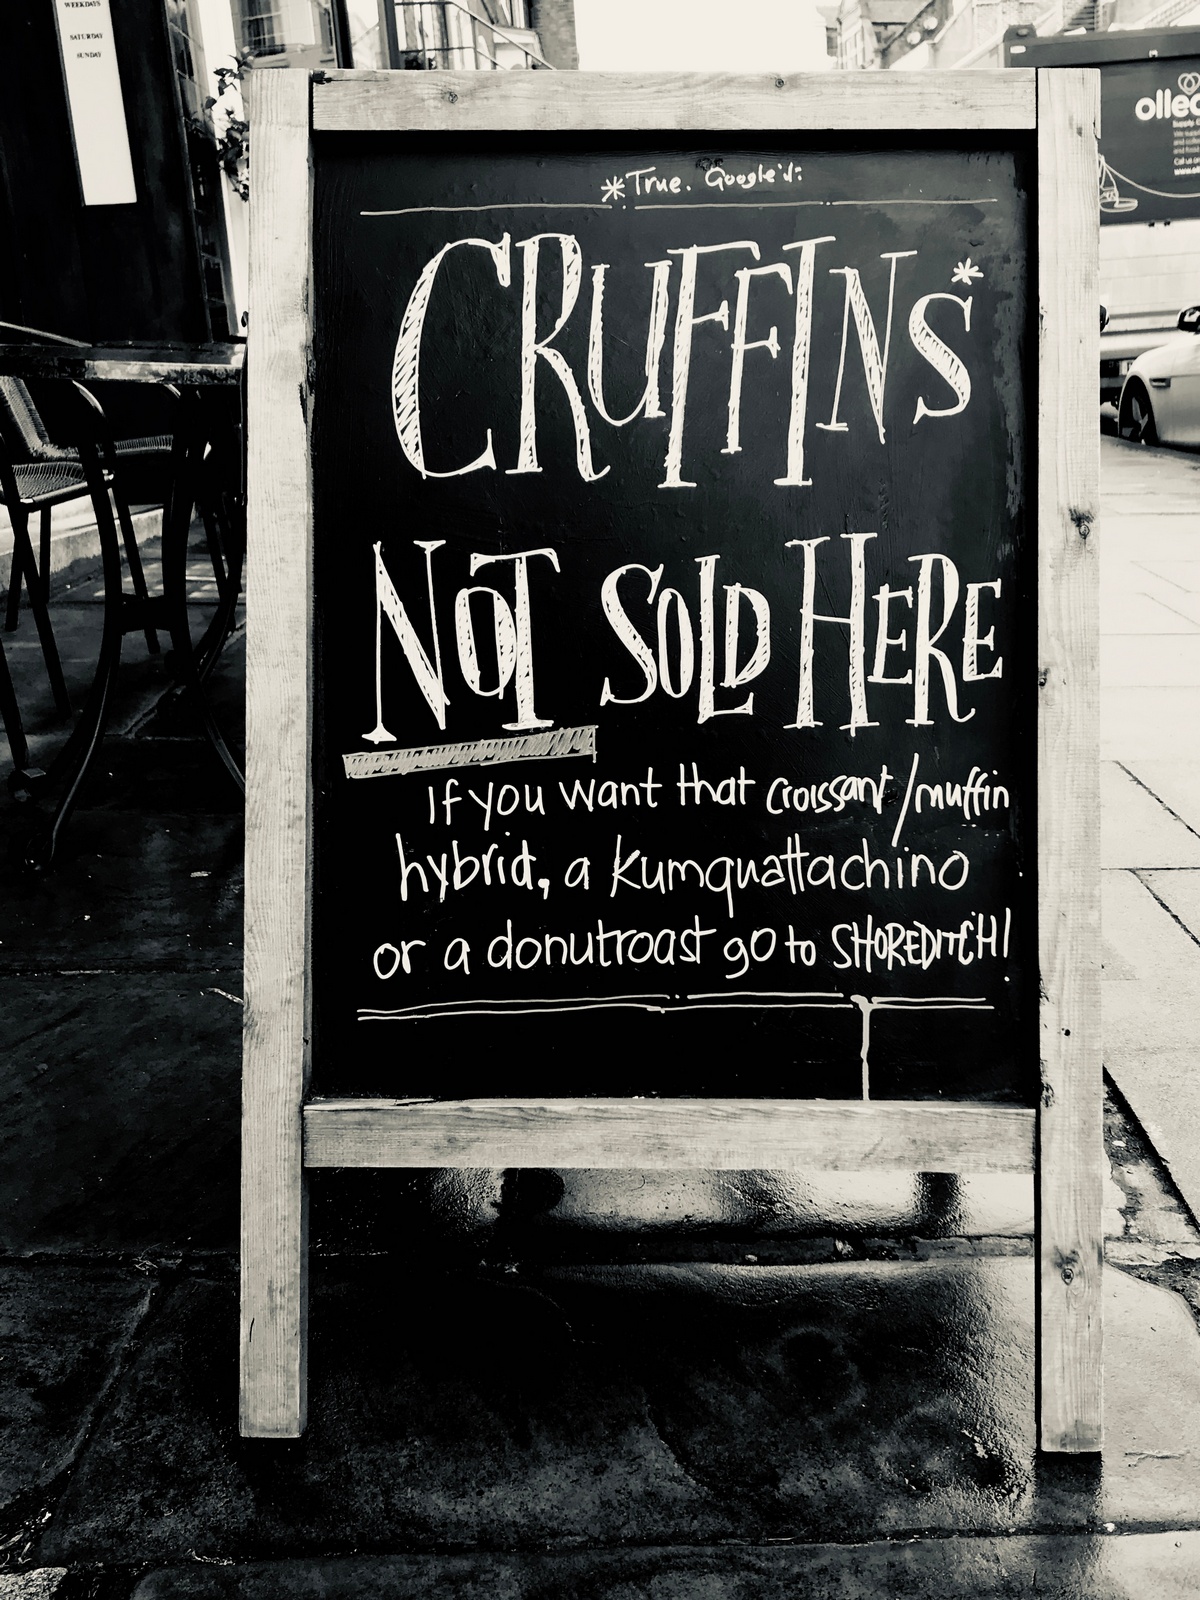 WEEKDAYS
SATURDAY
SUNDAY
*True. Google it:
CRUFFINS*
NOT SOLD HERE
If you want that croissant/muffin
hybrid, a kumquattachino
or a donutroast go to SHOREDITCH!
olleco